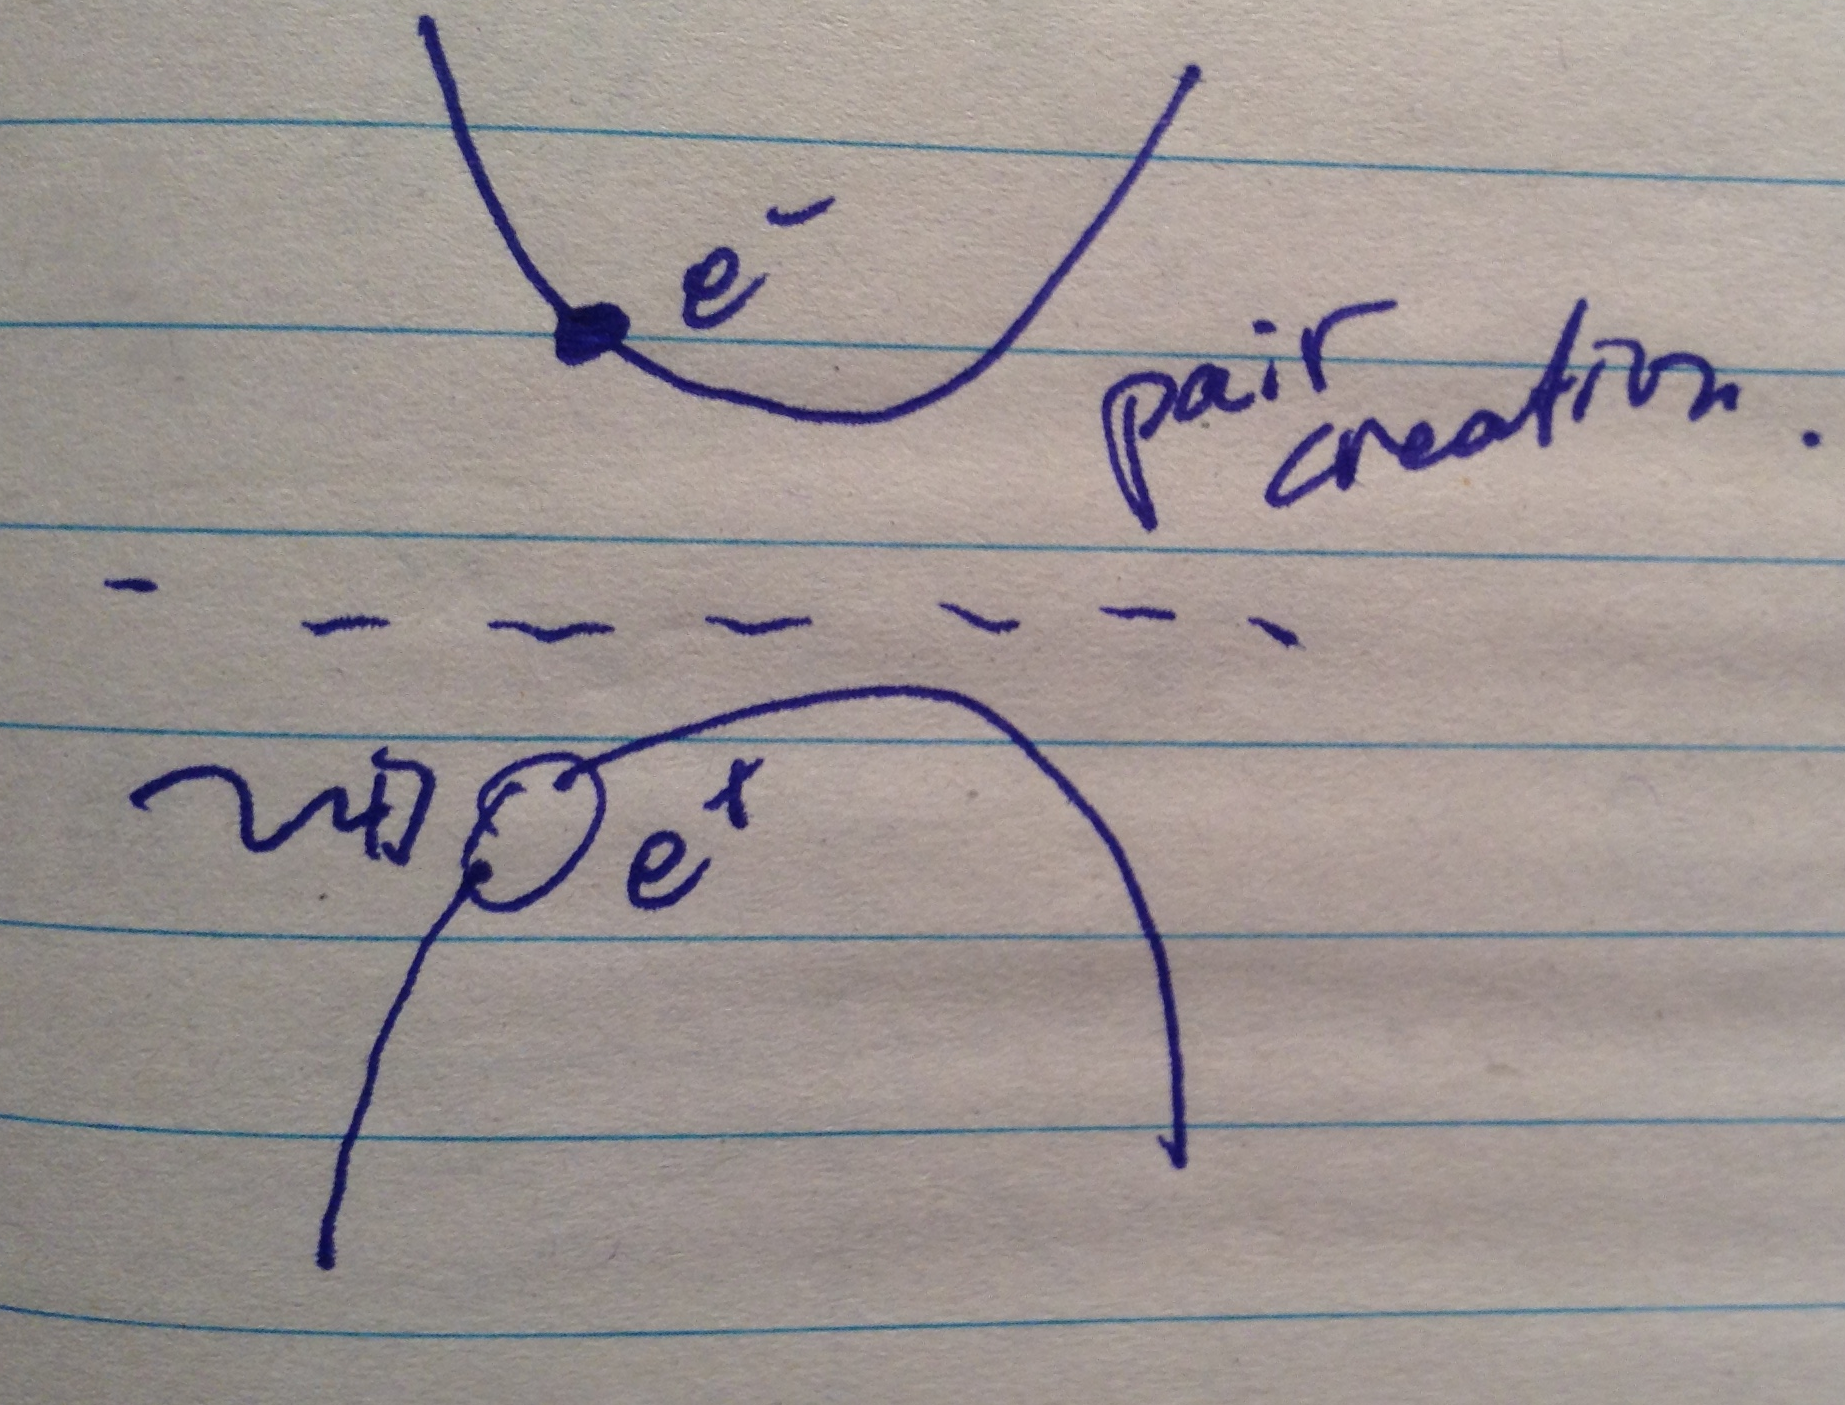 e⁻
pair
creation.
e⁺